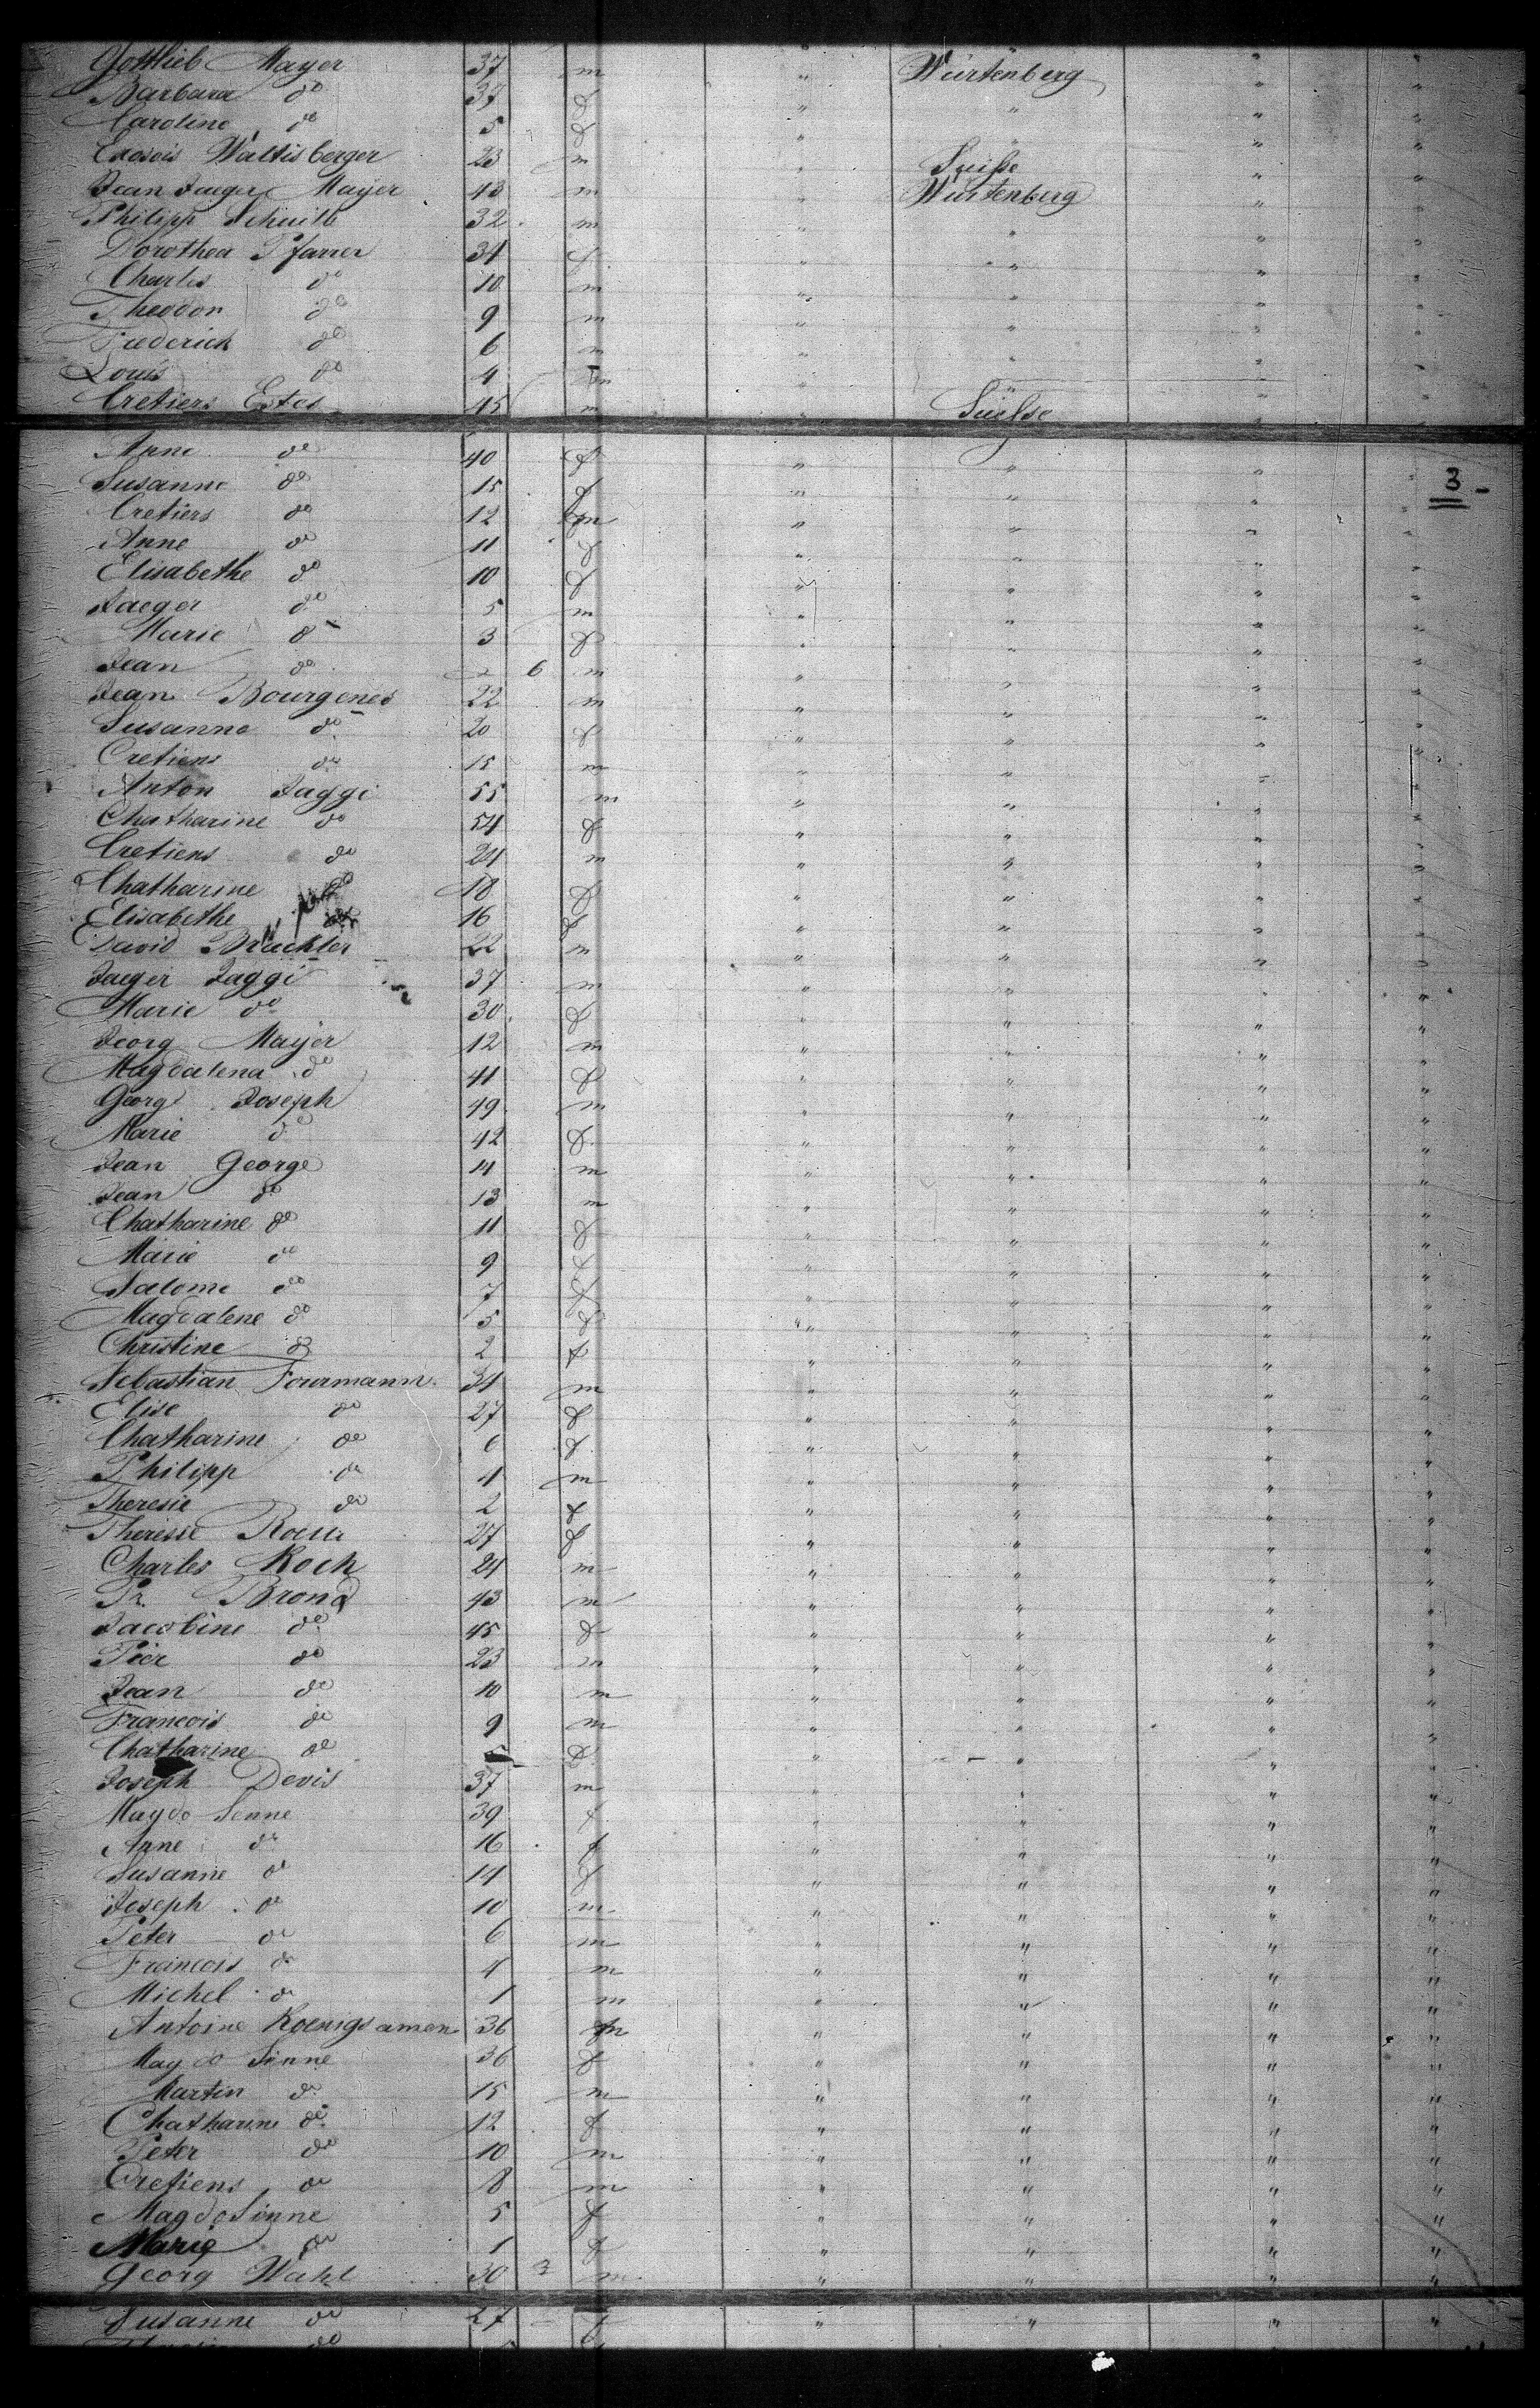 Gottlieb Mayer 37 m " Würtenberg " "
Barbara do 37 f " " " "
Caroline do 5 f " " " "
Waltisberger 23 m " Suisse " "
Jean Jaeger Mayer 43 m " Würtenberg " "
Philipp 32 m " " " "
Dorothea Pfarrer 34 f " " " "
Charles do 10 m " " " "
Theodor do 9 m " " " "
Frederick do 6 m " " " "
Louis do 4 m " " " "
Cretiens Estes 45 m " Suisse " "
Anne do 40 f " " " "
3
Susanne do 15 f " " " "
Cretiens do 12 m " " " "
Anne do 11 f " " " "
Elisabethe do 10 f " " " "
Jaeger do 5 m " " " "
Marie do 3 f " " " "
Jean do 6 m " " " "
Jean Bourgenes 22 m " " " "
Susanne do 20 f " " " "
Cretiens do 15 m " " " "
Anton Jaggi 55 m " " " "
Chatharine do 54 f " " " "
Cretiens do 24 m " " " "
Chatharine do 18 f " " " "
Elisabethe 16 f " " " "
David Brachter 22 m " " " "
Jaeger Jaggi 37 m " " " "
Marie do 30 f " " " "
Georg Mayer 12 m " " " "
Magdalena do 41 f " " " "
Georg Joseph 49 m " " " "
Marie do 42 f " " " "
Jean George 14 m " " " "
Jean do 13 m " " " "
Chatharine do 11 f " " " "
Marie do 9 f " " " "
Salome do 7 f " " " "
Magdalene do 5 f " " " "
Christine do 2 f " " " "
Sebastian Fourmann 34 m " " " "
Elise do 27 f " " " "
Chatharine do 6 f " " " "
Philipp do 4 m " " " "
Theresie do 2 f " " " "
Theresie 27 f " " " "
Charles Koch 24 m " " " "
Pr. Brond 43 m " " " "
Jacobine do 45 f " " " "
Pier do 23 m " " " "
Jean do 10 m " " " "
Francois do 9 m " " " "
Chatharine do f " " " "
Joseph Devis 37 m " " " "
Magdo Senne 39 f " " " "
Anne do 16 f " " " "
Susanne do 14 f " " " "
Joseph do 10 m " " " "
Peter do 6 m " " " "
Francois do 4 m " " " "
Michel do 1 m " " " "
Antoine Koenigsamen 36 m " " " "
Magdo Sinne 36 f " " " "
Martin do 15 m " " " "
Chatharine do 12 f " " " "
Peter do 10 m " " " "
Cretiens do 8 m " " " "
Magdo Sinne 5 f " " " "
Marie do 1 f " " " "
Georg Wahl 30 m " " " "
Susanne do 27 f " " " "